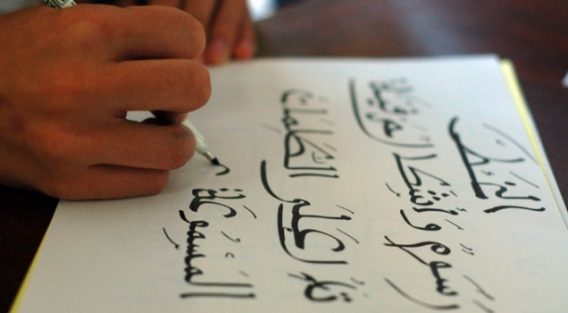 الخَطُّ
رُسُومٌ وَأَشْكَالٌ حَرْفِيَّةٌ
تَدُلُّ عَلَى الكَلِمَاتِ
المَسْمُوعَةِ